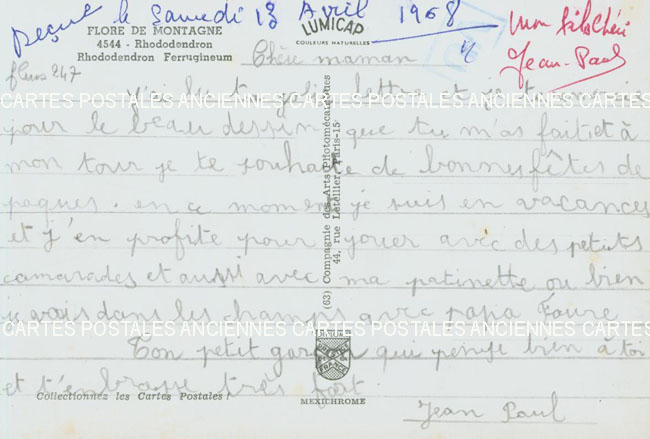 Reçue le Samedi 13 Avril 1968
mon fils Chéri
Jean-Paul
FLORE DE MONTAGNE
4544 - Rhododendron
Rhododendron Ferrugineum
LUMICAP
COULEURS NATURELLES
fleurs 247
Chère maman
J'ai lu ta jolie lettre et je te remercie
CARTES POSTALES ANCIENNES CARTES POSTALES ANCIENNES CARTES
pour le beau dessin que tu m'as fait et à
mon tour je te souhaite de bonnes fêtes de
paques. en ce moment je suis en vacances
et j'en profite pour jouer avec des petits
camarades et aussi avec ma patinette ou bien
je vais dans les champs avec papa Faure
CARTES POSTALES ANCIENNES CARTES POSTALES ANCIENNES CARTES
Ton petit garçon qui pense bien à toi
et t'embrasse très fort
Jean Paul
(63) Compagnie des Arts Photomécaniques
44, rue Letellier, Paris-15
Collectionnez les Cartes Postales
FRANCE
MEXICHROME